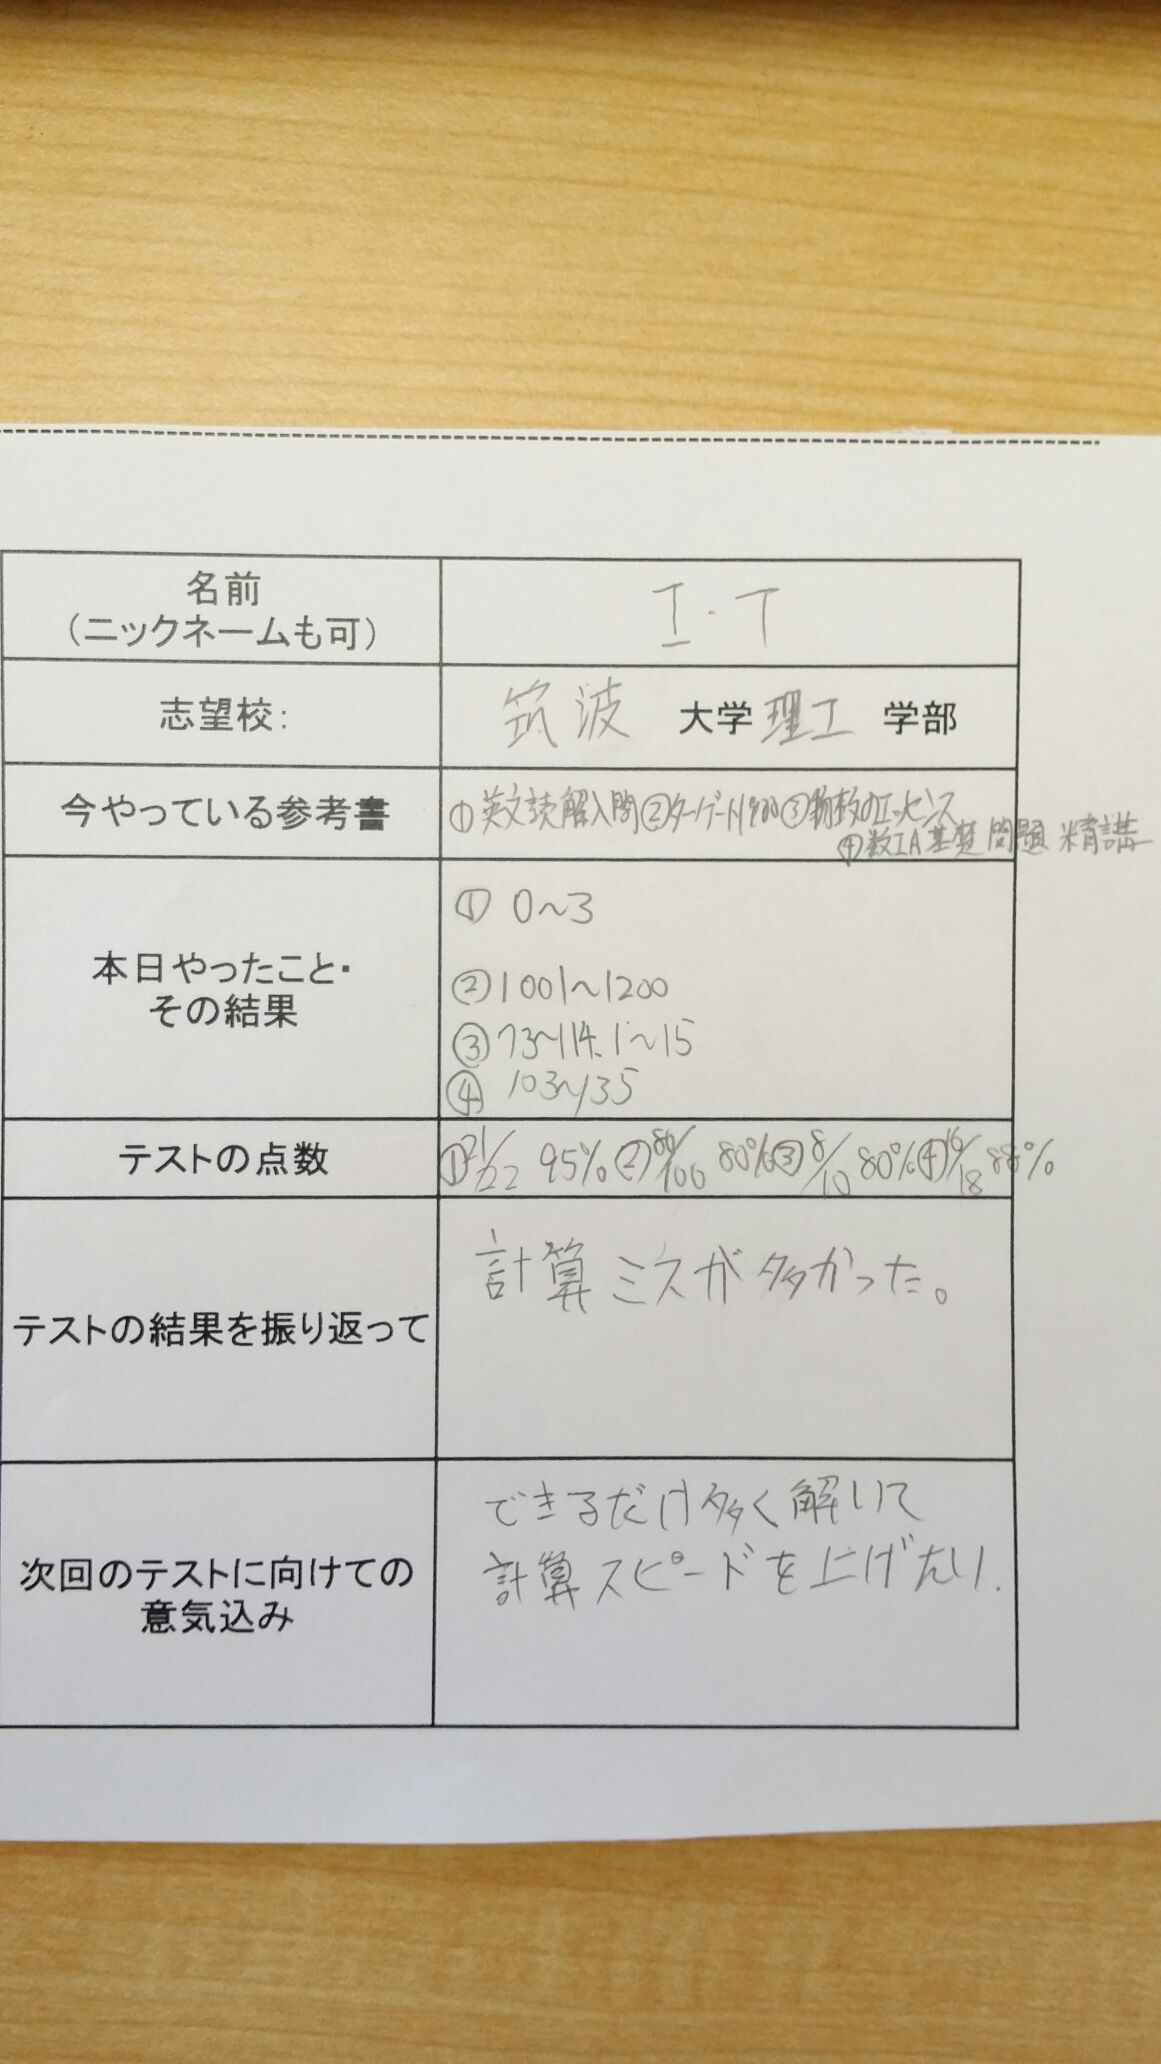 名前
（ニックネームも可）
I・T
志望校：
筑波 大学 理工 学部
今やっている参考書
①英文読解入門②ターゲット1900③物理のエッセンス
④数IA基礎問題精講
本日やったこと・
その結果
① 0～3
②1001～1200
③73～114.1～15
④ 103～135
テストの点数
①21/22 95%②80/100 80%③8/10 80%④16/18 88%
テストの結果を振り返って
計算ミスが多かった。
次回のテストに向けての
意気込み
できるだけ多く解いて
計算スピードを上げたい.